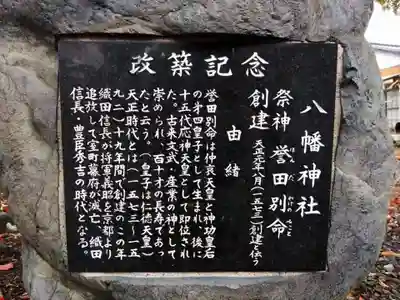 改築記念
八幡神社
祭神 誉田別命
ほんだ わけの みこと
創建 天正元年八月(一五七三)創建と伝う
由緒
誉田別命は仲哀天皇と神功皇后
の第四皇子として生まれ、後に
十五代応神天皇として即位され
た。古来文武・産業の神として
崇められ、百十才の長寿であっ
たと云う。(皇子は仁徳天皇)
天正時代とは(一五七三〜一五
九二)十九年間で創建のこの年
織田信長が将軍義昭を京都より
追放して室町幕府が滅亡、織田
信長・豊臣秀吉の時代となる。